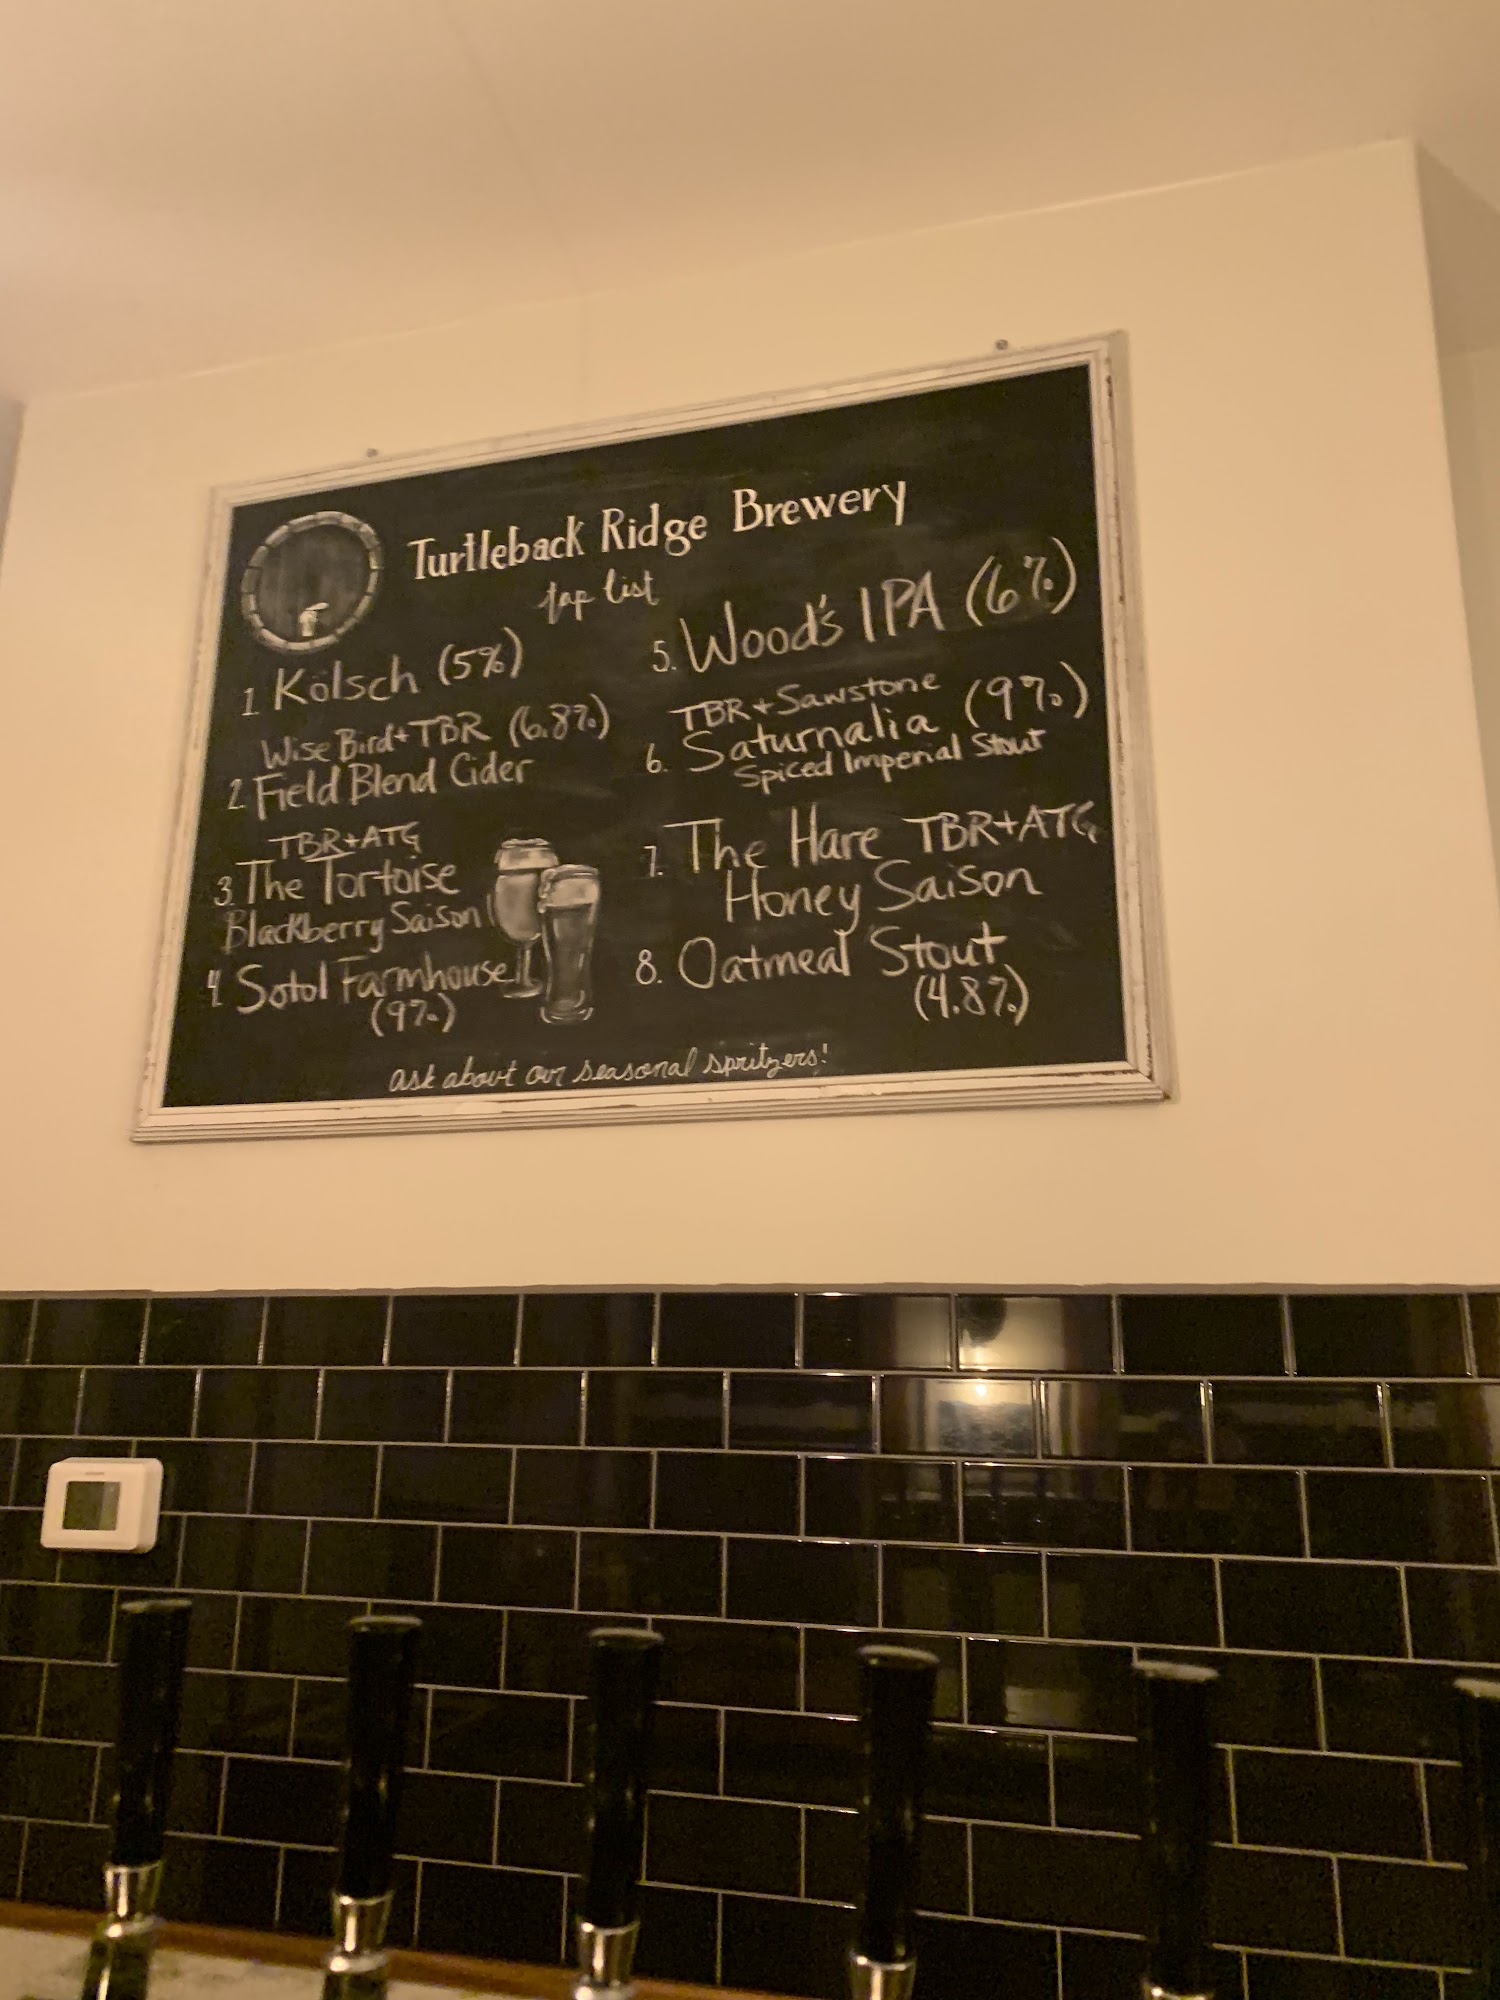 Turtleback Ridge Brewery
tap list
1. Kölsch (5%)
Wise Bird + TBR (6.8%)
2. Field Blend Cider
TBR + ATG
3. The Tortoise
Blackberry Saison
4. Sotol Farmhouse
(9%)
5. Wood's IPA (6%)
TBR + Sawstone
6. Saturnalia (9%)
Spiced Imperial Stout
7. The Hare TBR + ATG
Honey Saison
8. Oatmeal Stout
(4.8%)
ask about our seasonal spritzers!